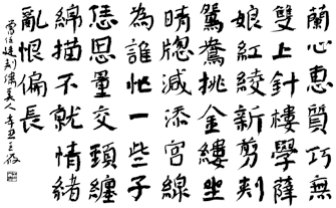 蘭心惠質巧無
雙上針樓學薛
娘紅綾新剪刺
鴛鴦挑金縷坐
晴牕減添宮線
為誰忙一些子
恁思量交頸纏
綿描不就情緒
亂恨偏長
刺繡美人辛丑王